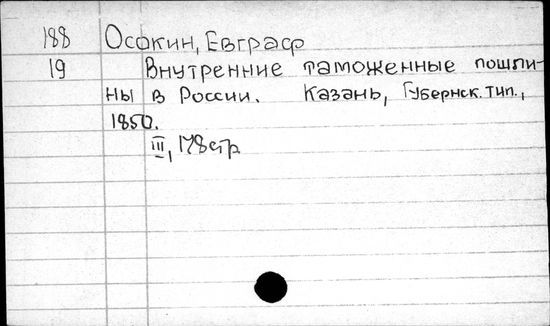 188 Осокин, Евграф
19 Внутренние таможенные пошли-
ны в России. Казань, Губернск. тип.,
1850.
III, 178 стр